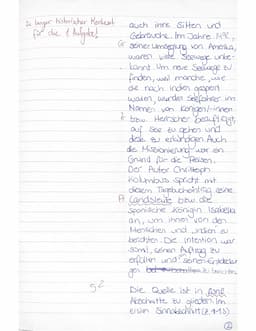 zu langer historischer Kontext
für die 1. Aufgabe!
auch ihre Sitten und
Gebräuche. Im Jahre 1492,
G seiner Umsegelung von Amerika,
waren viele Seewege unbe-
kannt. Um neue Seewege zu
finden, weil manche, wie
die nach Indien gesperrt
waren, wurden Seefahrer im
Namen von Königen/-innen
bzw. Herrscher beauftragt,
auf See zu gehen und
diese zu erkundigen. Auch
die Missionierung war ein
Grund für die Reisen.
Der Autor Christoph
Kolumbus spricht mit
diesem Tagebucheintrag seine
A Landsleute bzw. die
spanische Königin Isabella
an, um ihnen von den
Menschen und Indien zu
berichten. Die Intention war
somit, seinen Auftrag zu
erfüllen und seinen Entdeckun-
gen zu berichten
Die Quelle ist in fünf
Abschnitte zu gliedern. Im
ersten Sinnabschnitt (Z. 1-13)
2